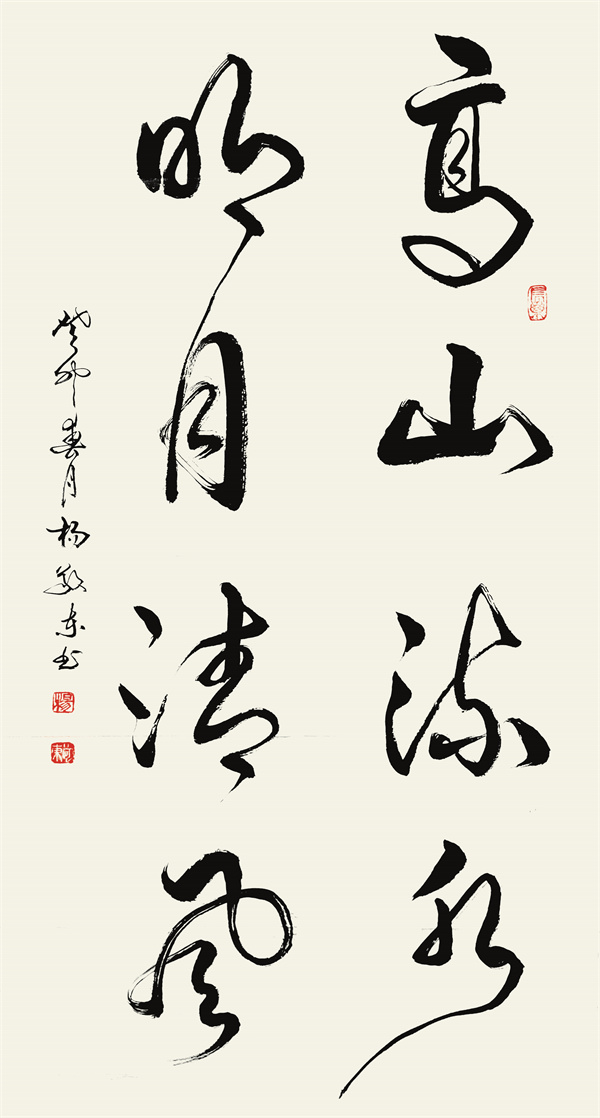 高山流水
明月清风
癸卯春月杨敬东书